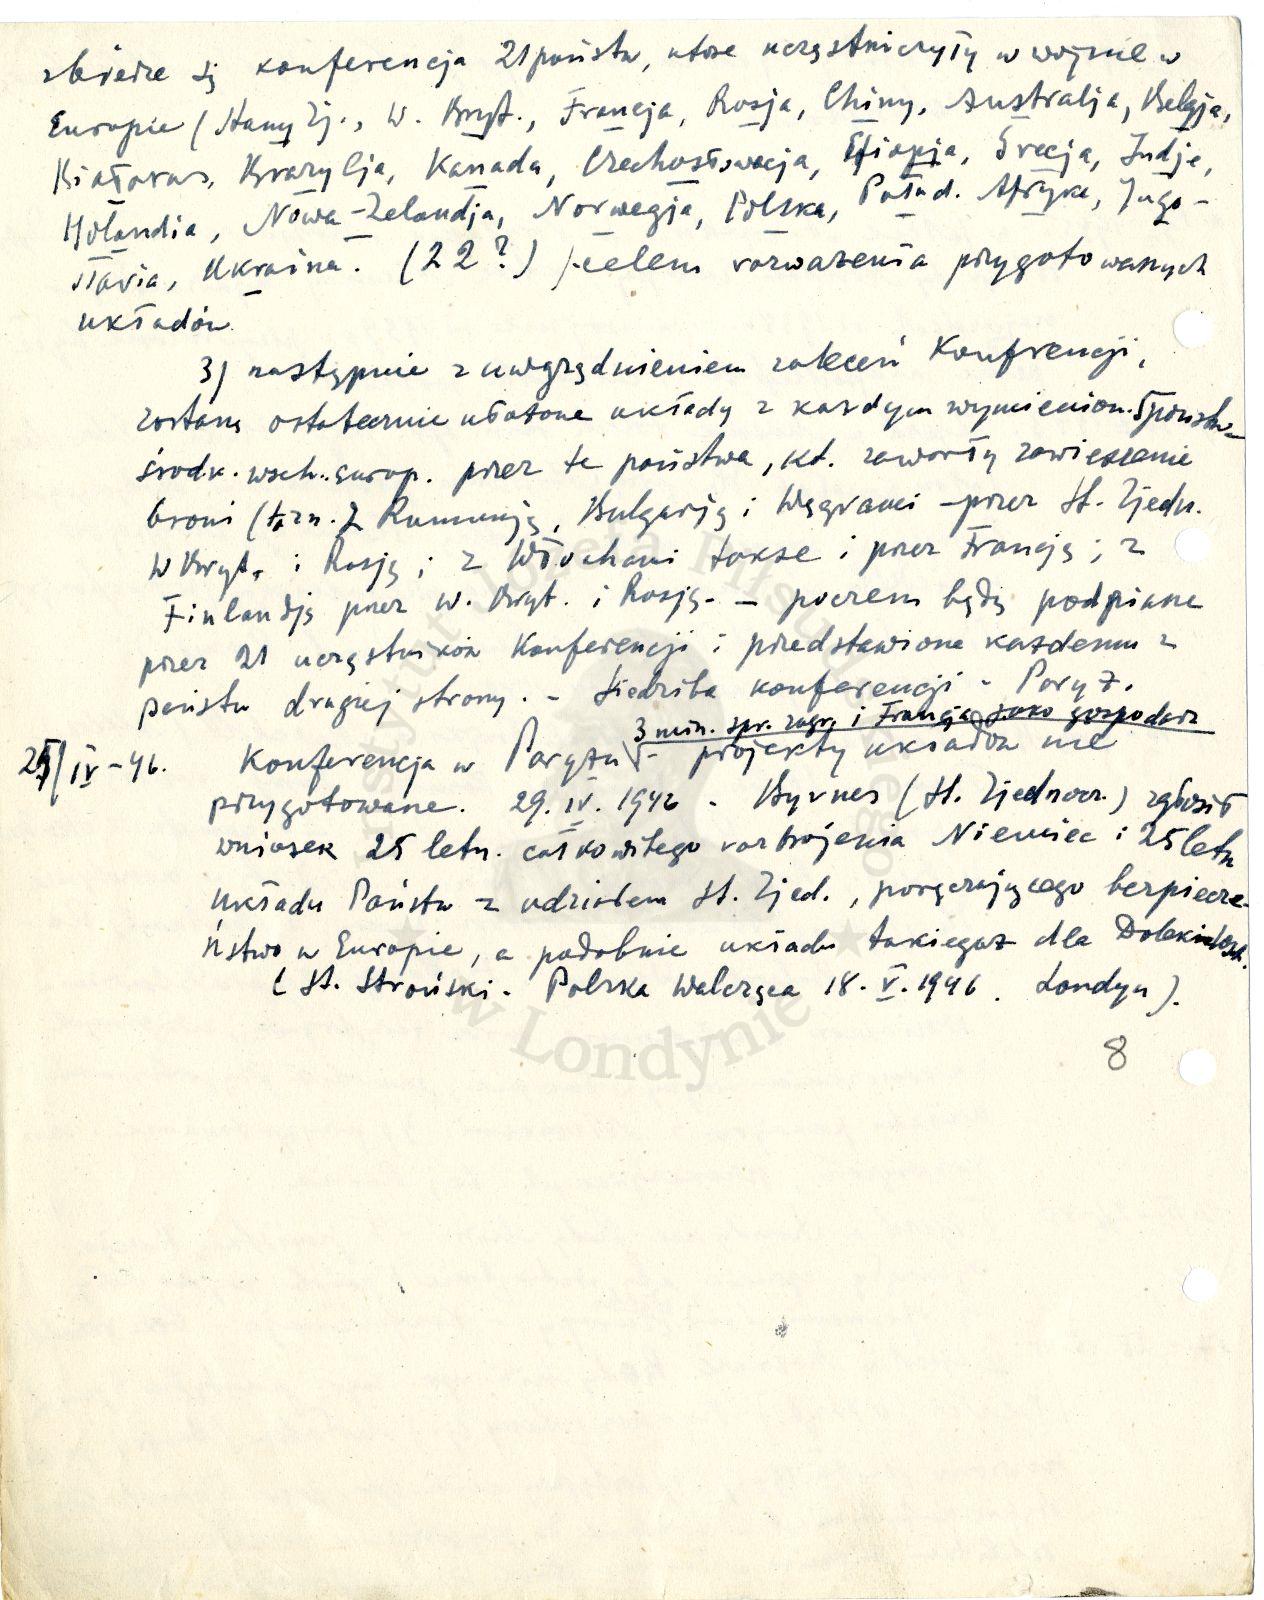 zbierze się konferencja 21 państw, które uczęstniczyły w wojnie w
Europie (Stany Zj., W. Bryt., Francja, Rosja, Chiny, Australja, Belgja,
Białoruś, Brazylja, Kanada, Czechosłowacja, Etiopja, Grecja, Indje,
Holandia, Nowa-Zelandja, Norwegja, Polska, Połud. Afryka, Jugo-
sławia, Ukraina. (22?) celem rozważenia przygotowanych
układów.
3) następnie z uwzględnieniem zaleceń Konferencji,
zostaną ostatecznie ułożone układy z każdym wymienion. 5 państw
środk. wsch. europ. przez te państwa, kt. zawarły zawieszenie
broni (tzn. z Rumunją, Bulgarją i Węgrami - przez St. Zjedn.
W Bryt. i Rosję; z Włochami także i przez Francję; z
Finlandją przez W. Bryt. i Rosję. — poczem będą podpisane
przez 21 uczęstników Konferencji i przedstawione każdemu z
państw drugiej strony. - Siedziba konferencji - Paryż.
3 min. spr. zagr. i Francja jako gospodarz
25/IV-46. Konferencja w Paryżu - projekty układów nie
przygotowane. 29.IV.1946 - Byrnes (St. Zjednocz.) zgłosił
wniosek 25 letn. całkowitego rozbrojenia Niemiec i 25 letn
układu Państw z udziałem St. Zjed., poręczającego bezpiecze-
ństwo w Europie, a podobnie układu takiegoż dla Dalekie Wsch.
(St. Stroński - Polska Walcząca 18.V.1946. Londyn).
8
Instytut Józefa Piłsudskiego w Londynie